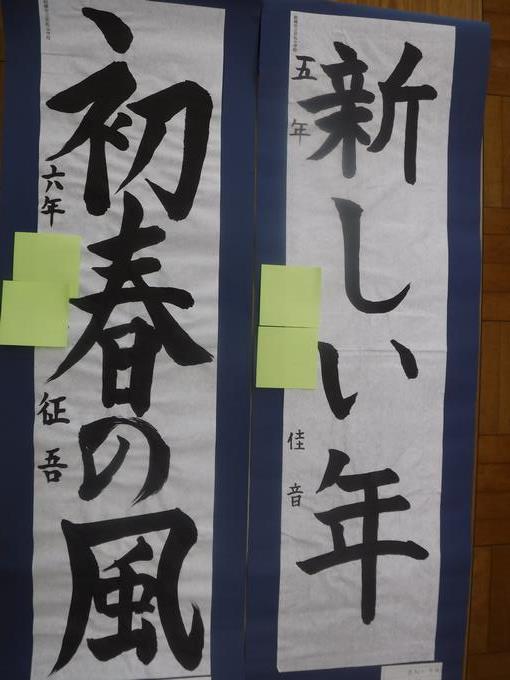 新しい年
五年
佳音
初春の風
六年
征吾